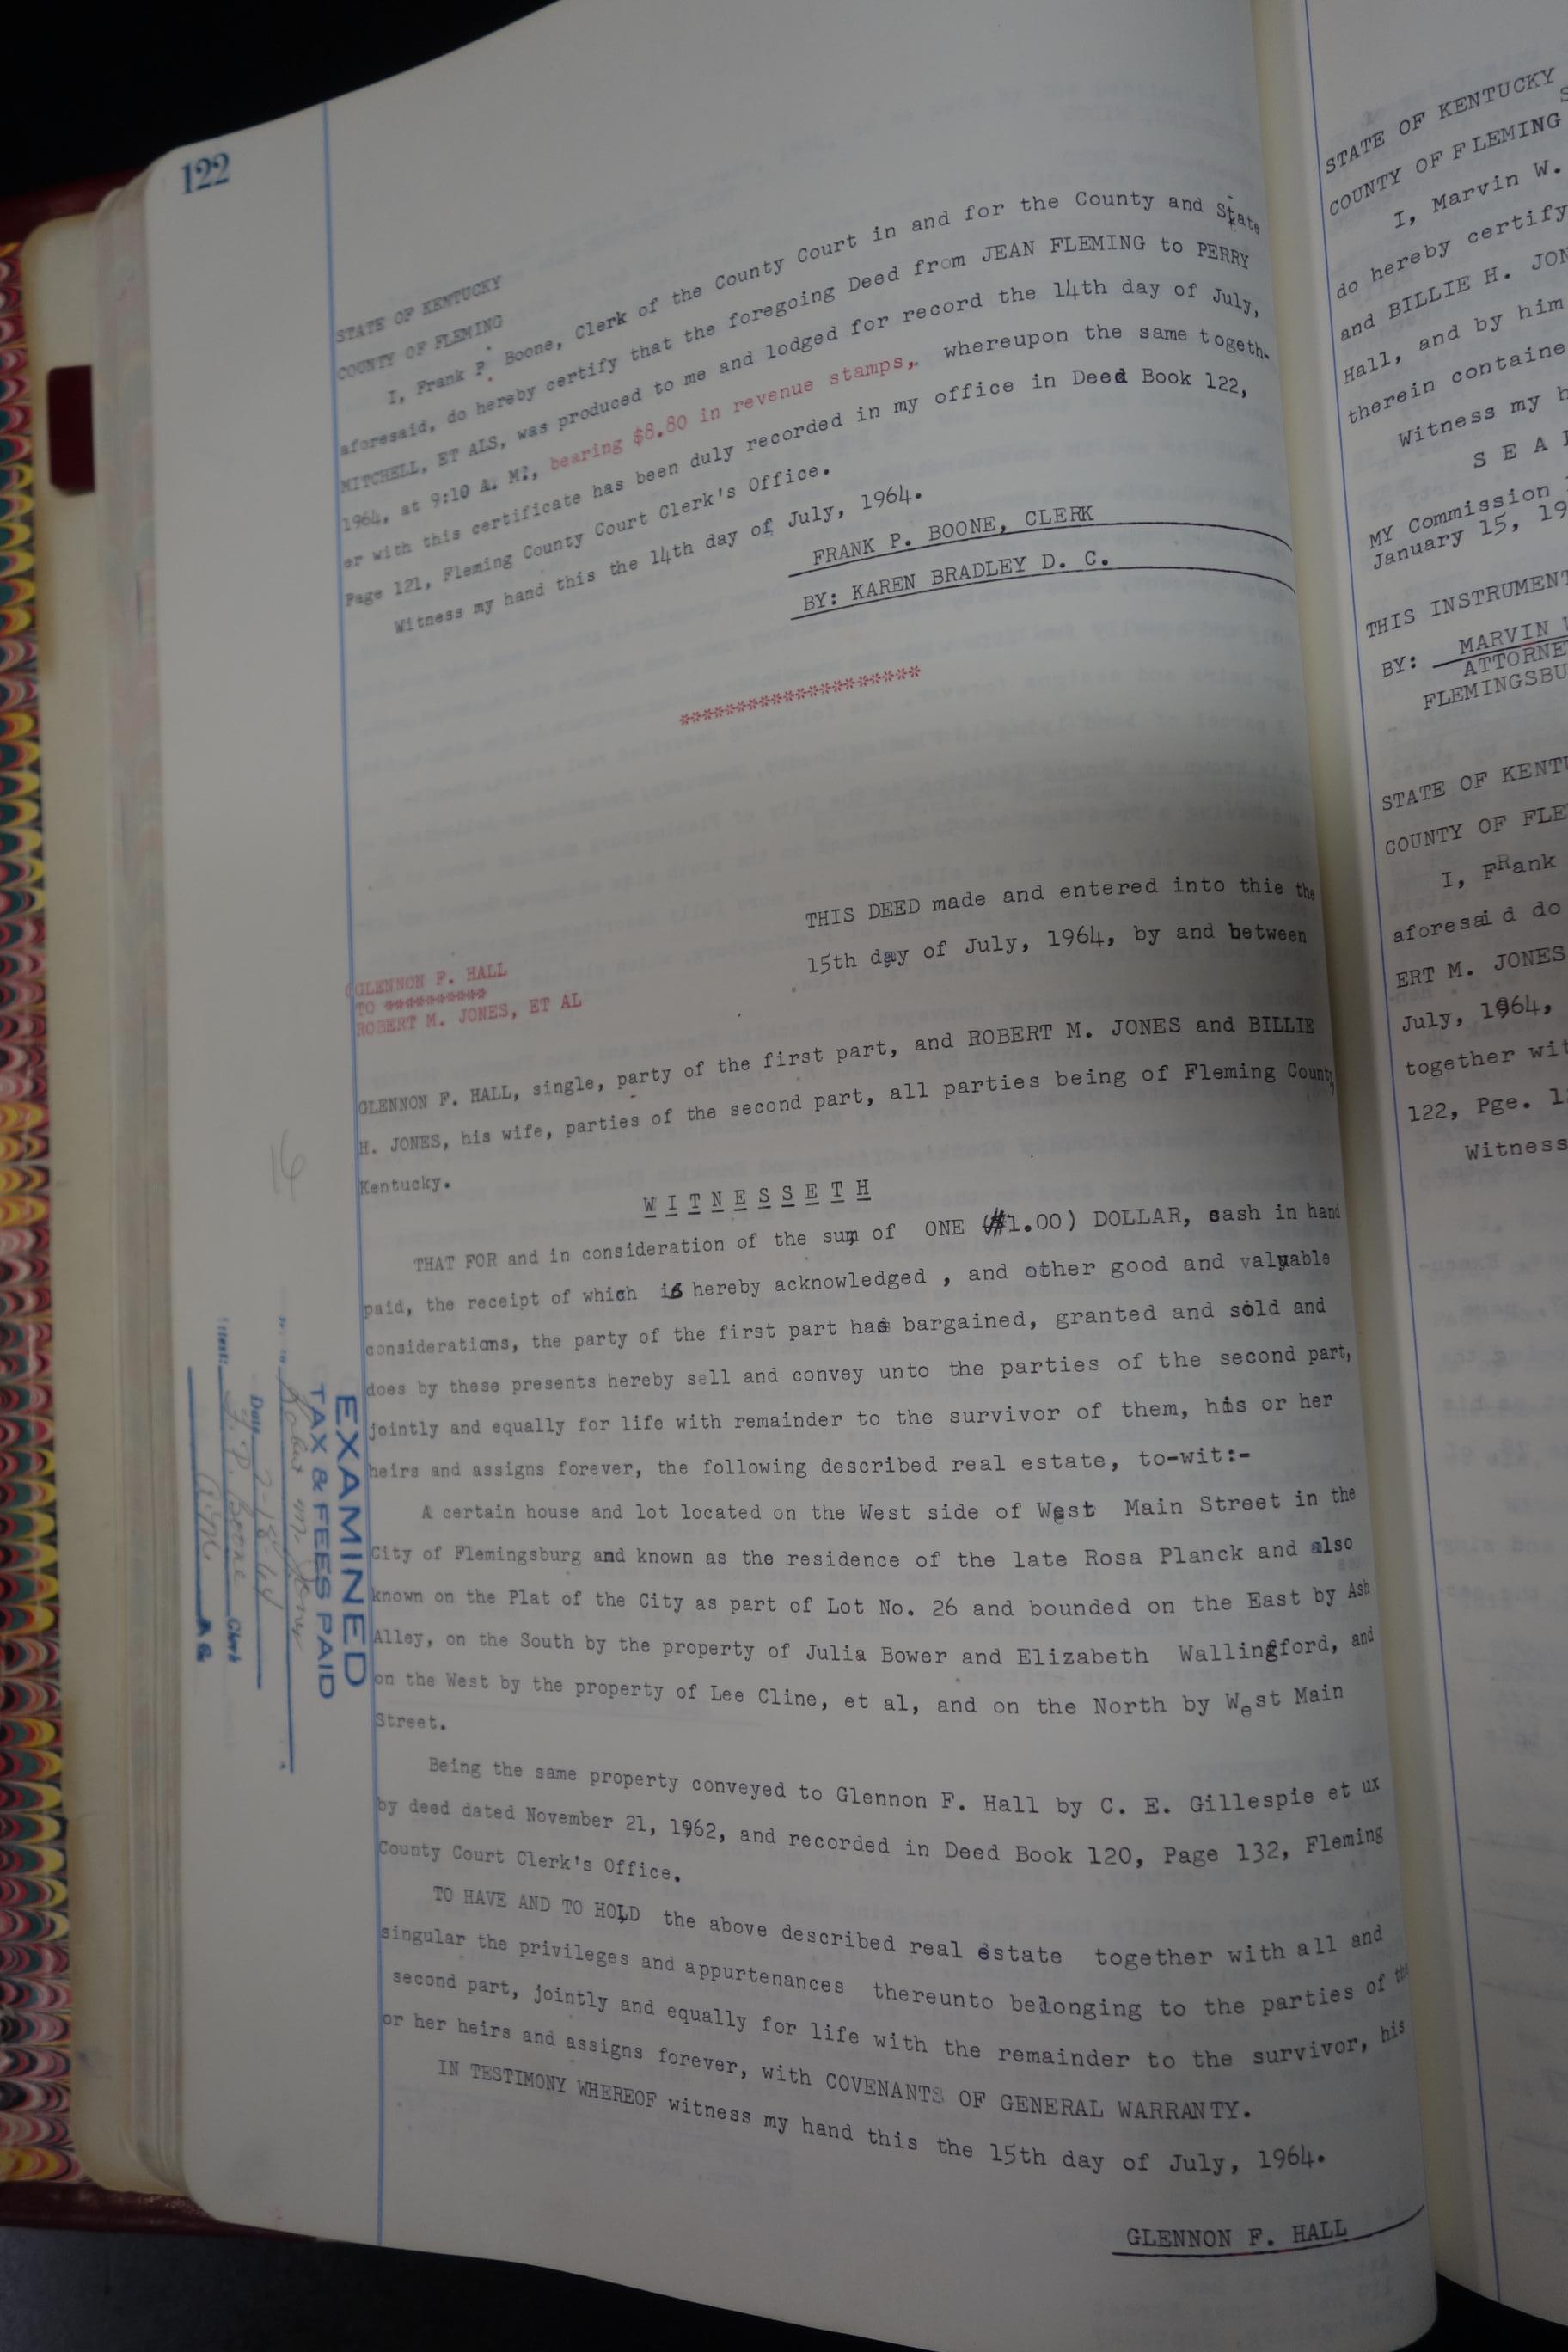 122
STATE OF KENTUCKY
COUNTY OF FLEMING
I, Frank P. Boone, Clerk of the County Court in and for the County and State
aforesaid, do hereby certify that the foregoing Deed from JEAN FLEMING to PERRY
MITCHELL, ET ALS, was produced to me and lodged for record the 14th day of July,
1964, at 9:10 A. M?, bearing $8.80 in revenue stamps, whereupon the same togeth-
er with this certificate has been duly recorded in my office in Deed Book 122,
Page 121, Fleming County Court Clerk's Office.
Witness my hand this the 14th day of July, 1964.
FRANK P. BOONE, CLERK
BY: KAREN BRADLEY D. C.
********************
THIS DEED made and entered into thie the
15th day of July, 1964, by and between
GLENNON F. HALL
TO **********
ROBERT M. JONES, ET AL
GLENNON F. HALL, single, party of the first part, and ROBERT M. JONES and BILLIE
H. JONES, his wife, parties of the second part, all parties being of Fleming County
Kentucky.
W I T N E S S E T H
THAT FOR and in consideration of the sum of ONE ($1.00) DOLLAR, cash in hand
paid, the receipt of which is hereby acknowledged , and other good and valuable
considerations, the party of the first part has bargained, granted and sold and
does by these presents hereby sell and convey unto the parties of the second part,
jointly and equally for life with remainder to the survivor of them, his or her
heirs and assigns forever, the following described real estate, to-wit:-
A certain house and lot located on the West side of West Main Street in the
City of Flemingsburg and known as the residence of the late Rosa Planck and also
known on the Plat of the City as part of Lot No. 26 and bounded on the East by Ash
Alley, on the South by the property of Julia Bower and Elizabeth Wallingford, and
on the West by the property of Lee Cline, et al, and on the North by West Main
Street.
Being the same property conveyed to Glennon F. Hall by C. E. Gillespie et ux
by deed dated November 21, 1962, and recorded in Deed Book 120, Page 132, Fleming
County Court Clerk's Office.
TO HAVE AND TO HOLD the above described real estate together with all and
singular the privileges and appurtenances thereunto belonging to the parties of the
second part, jointly and equally for life with the remainder to the survivor, his
or her heirs and assigns forever, with COVENANTS OF GENERAL WARRANTY.
IN TESTIMONY WHEREOF witness my hand this the 15th day of July, 1964.
GLENNON F. HALL
EXAMINED
TAX & FEES PAID
Robert M. Jones
Date
F. P. Boone Clerk
STATE OF KENTUCKY
COUNTY OF FLEMING
I, Marvin W.
do hereby certify
and BILLIE H. JON
Hall, and by him
therein containe
Witness my h
S E A
MY Commission
January 15, 19
THIS INSTRUMENT
BY: MARVIN W
ATTORNE
FLEMINGSBU
STATE OF KENTU
COUNTY OF FLE
I, FRank
aforesai d do
ERT M. JONES
July, 1964,
together wit
122, Pge. 1
Witness